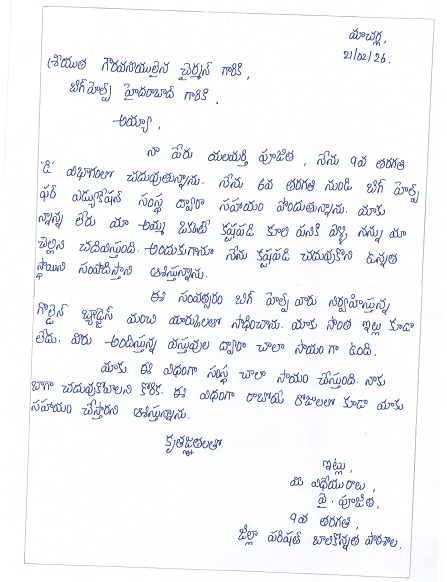 మాచర్ల,
21/02/26.
శ్రీయుత గౌరవనీయులైన చైర్మన్ గారికి,
బిగ్ హెల్ప్ హైదరాబాద్ గారికి.
అయ్యా,
నా పేరు యలయర్తి పూజిత, నేను 9వ తరగతి
'డి' విభాగంలో చదువుతున్నాను. నేను 6వ తరగతి నుండి బిగ్ హెల్ప్
ఫర్ ఎడ్యుకేషన్ సంస్థ ద్వారా సహాయం పొందుతున్నాను. మాకు
నాన్న లేరు మా అమ్మ ఒకతే కష్టపడి కూలి పనికి వెళ్ళి నన్ను మా
చెల్లిని చదివిస్తుంది. అందుకుగానూ నేను కష్టపడి చదువుకొని ఉన్నత
స్థాయిని సంపాదిస్తాని ఆశిస్తున్నాను.
ఈ సంవత్సరం బిగ్ హెల్ప్ వారు నిర్వహిస్తున్న
గోల్డెన్ బ్యాడ్జెస్ మంచి మార్కులలో సాధించాను. మాకు సొంత ఇల్లు కూడా
లేదు. మీరు అందిస్తున్న వస్తువుల ద్వారా చాలా సాయం గా ఉంది.
మాకు ఈ విధంగా సంస్థ చాలా సాయం చేస్తుంది. నాకు
బాగా చదువుకోవాలని కోరిక. ఈ విధంగా రాబోయే రోజులలో కూడా మాకు
సహాయం చేస్తారని ఆశిస్తున్నాను.
కృతజ్ఞతలతో
ఇట్లు,
మీ విధేయురాలు,
వై. పూజిత,
9వ తరగతి,
జిల్లా పరిషత్ బాలికోన్నత పాఠశాల.